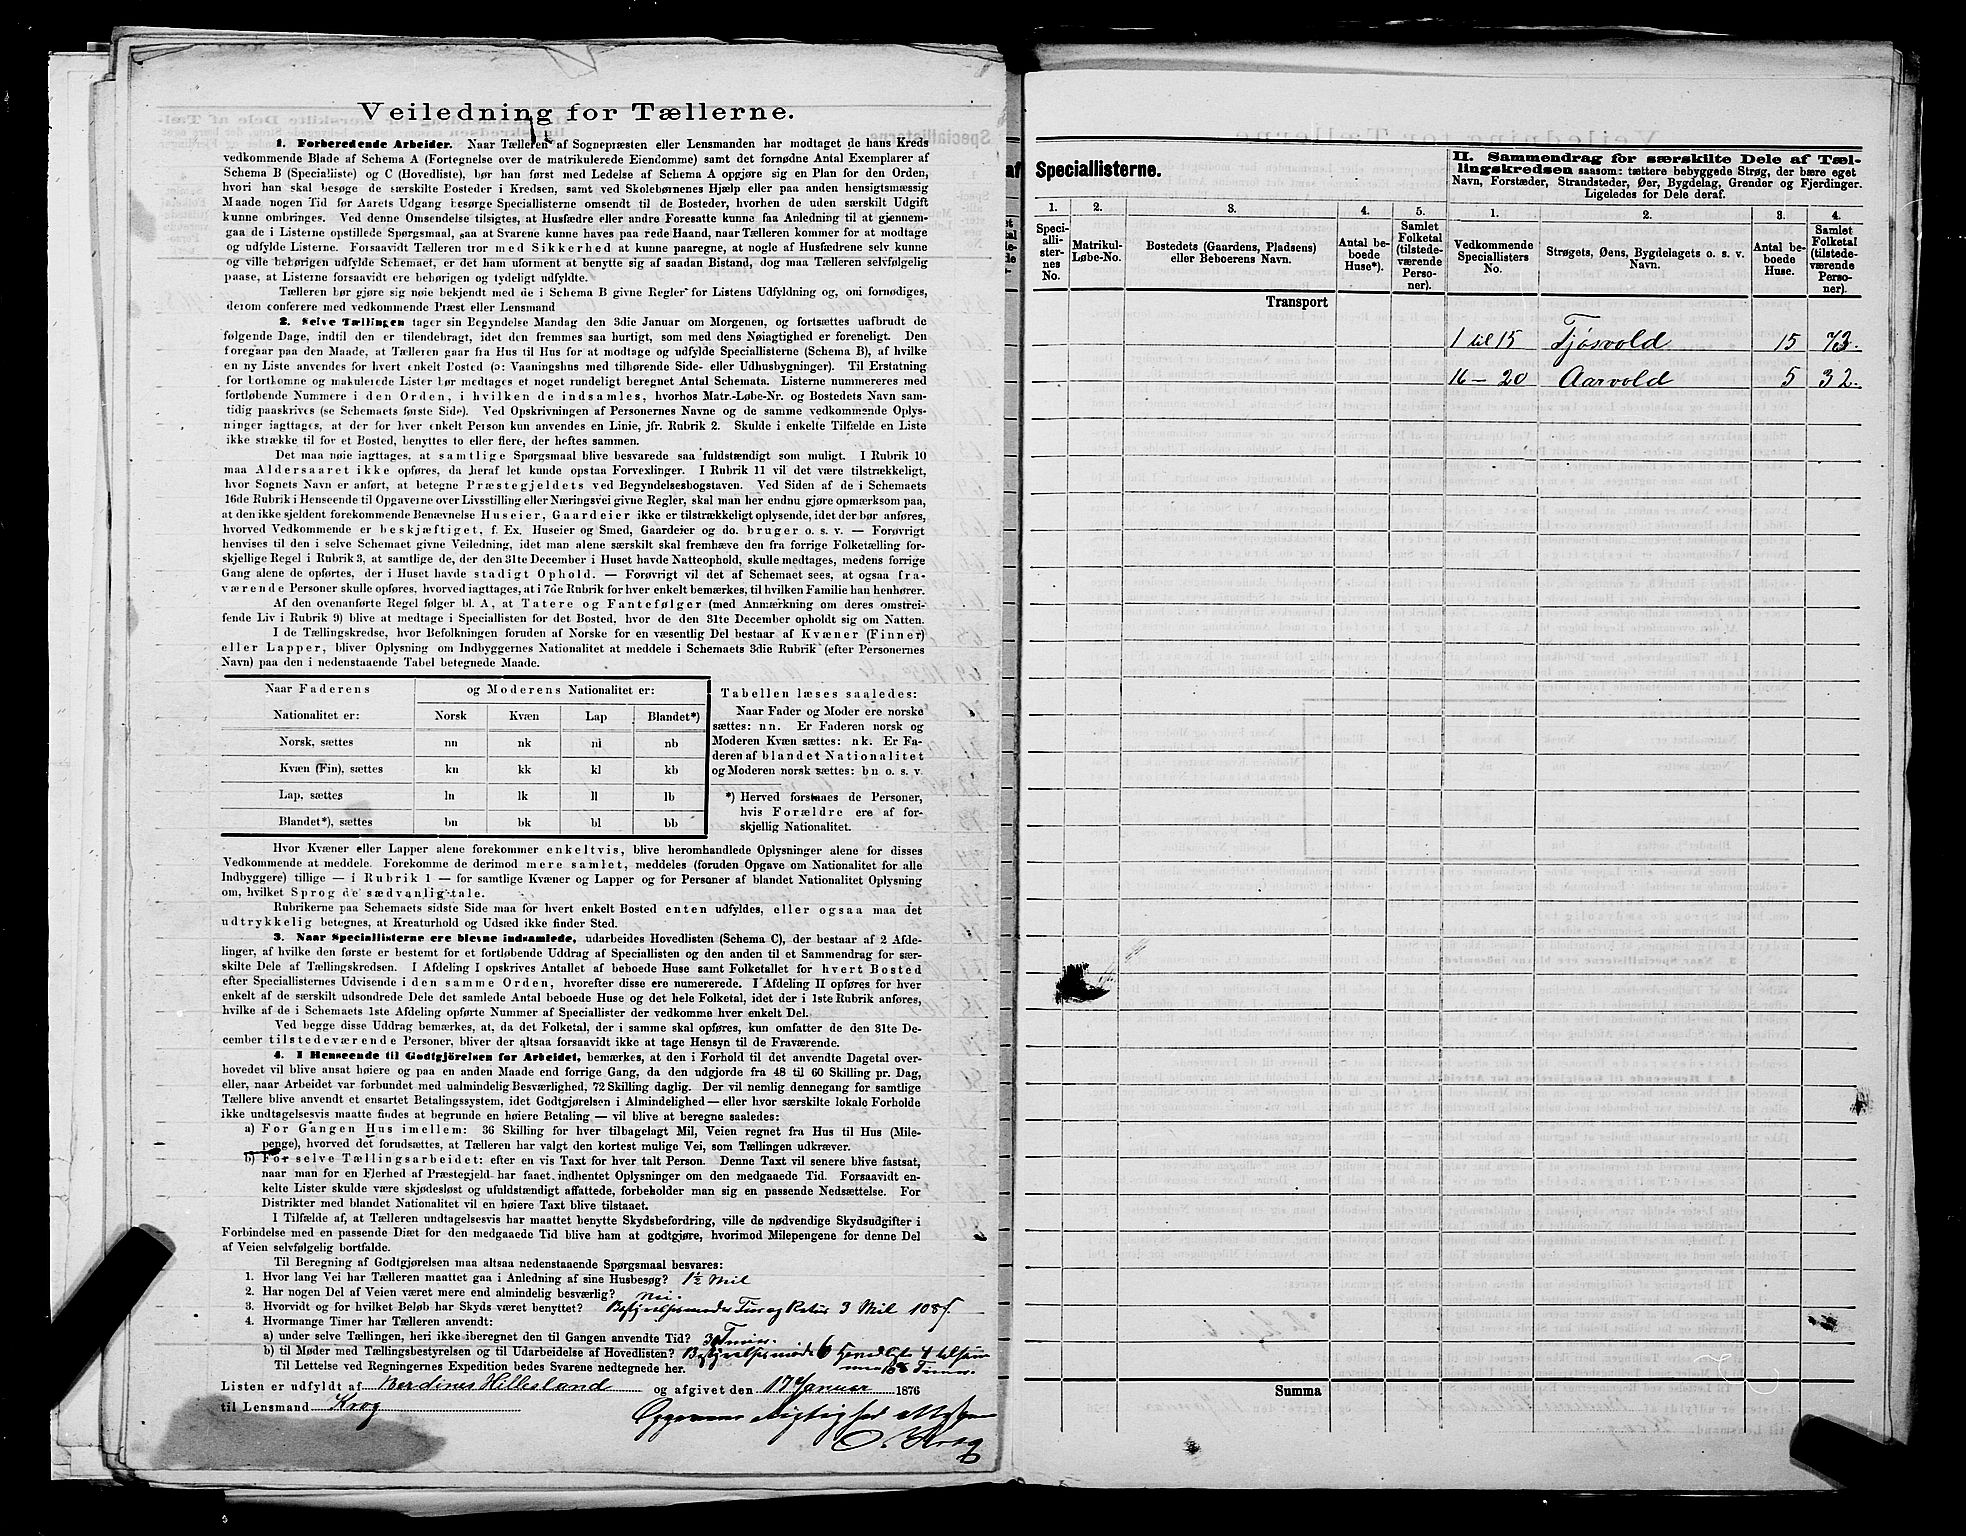 Veiledning for Tællerne.
1. Forberedende Arbeider. Naar Tælleren af Sognepræsten eller Lensmanden har modtaget de hans Kreds
vedkommende Blade af Schema A (Fortegnelse over de matrikulerede Eiendomme) samt det fornødne Antal Exemplarer af
Schema B (Specialliste) og C (Hovedliste), bør han først med Ledelse af Schema A opgjøre sig en Plan for den Orden,
hvori han skal besøge de særskilte Bosteder i Kredsen, samt ved Skolebørnenes Hjælp eller paa anden hensigtsmæssig
Maade nogen Tid før Aarets Udgang besørge Speciallisterne omsendt til de Bosteder, hvorhen de uden særskilt Udgift
kunne ombringes. Ved denne Omsendelse tilsigtes, at Husfædre eller andre Foresatte kunne faa Anledning til at gjennem-
gaa de i Listerne opstillede Spørgsmaal, saa at Svarene kunne haves paa rede Haand, naar Tælleren kommer for at modtage
og udfylde Listerne. Forsaavidt Tælleren tror med Sikkerhed at kunne paaregne, at nogle af Husfædrene selv kunne
og ville behørigen udfylde Schemaet, er det ham uforment at benytte sig af saadan Bistand, dog maa Tælleren selvfølgelig
paase, at Listerne forsaavidt ere behørigen og tydeligt udfyldte.
Tælleren bør gjøre sig nøie bekjendt med de i Schema B givne Regler for Listens Udfyldning og, om fornødiges,
derom conferere med vedkommende Præst eller Lensmand
2. Selve Tællingen tager sin Begyndelse Mandag den 3die Januar om Morgenen, og fortsættes uafbrudt de
følgende Dage, indtil den er tilendebragt, idet den fremmes saa hurtigt, som med dens Nøiagtighed er foreneligt. Den
foregaar paa den Maade, at Tælleren gaar fra Hus til Hus for at modtage og udfylde Speciallisterne (Schema B), af hvilke
en ny Liste anvendes for hvert enkelt Bosted (ɔ: Vaaningshus med tilhørende Side- eller Udhusbygninger). Til Erstatning
for bortkomne og makulerede Lister bør medtages et noget rundeligt beregnet Antal Schemata. Listerne nummereres med
fortløbende Nummere i den Orden, i hvilken de indsamles, hvorhos Matr.-Løbe-Nr. og Bostedets Navn sam-
tidig paaskrives (se Schemaets første Side). Ved Opskrivningen af Personernes Navne og de samme vedkommende Oplys-
ninger iagttages, at der for hver enkelt Person kun anvendes en Linie, jfr. Rubrik 2. Skulde i enkelte Tilfælde en Liste
ikke strække til for et Bosted, benyttes to eller flere, der heftes sammen.
Det maa nøie iagttages, at samtlige Spørgsmaal blive besvarede saa fuldstændigt som muligt. I Rubrik 10
maa Aldersaaret ikke opføres, da heraf let kunde opstaa Forvexlinger. I Rubrik 11 vil det være tilstrækkeligt,
hvor Sognets Navn er anført, at betegne Præstegjeldets ved Begyndelsesbogstaven. Ved Siden af de i Schemaets
16de Rubrik i Henseende til Opgaverne over Livsstilling eller Næringsvei givne Regler, skal man her endnu gjøre opmærksom paa,
at den ikke sjeldent forekommende Benævnelse Huseier, Gaardeier ikke er tilstrækkeligt oplysende, idet der bør anføres,
hvorved Vedkommende er beskjæftiget, f. Ex. Huseier og Smed, Gaardeier og do. bruger o. s. v. — Forøvrigt
henvises til den i selve Schemaet givne Veiledning, idet man alene særskilt skal fremhæve den fra forrige Folketælling for-
skjellige Regel i Rubrik 3, at samtlige de, der den 31te December i Huset havde Natteophold, skulle medtages, medens forrige
Gang alene de opførtes, der i Huset havde stadigt Ophold. — Forøvrigt vil det af Schemaet sees, at ogsaa fra-
værende Personer skulle opføres, hvorved iagttages, at i 7de Rubrik for hver enkelt bemærkes, til hvilken Familie han henhører.
Af den ovenanførte Regel følger bl. A, at Tatere og Fantefølger (med Anmærkning om deres omstrei-
fende Liv i Rubrik 9) blive at medtage i Speciallisten for det Bosted, hvor de den 31te December opholdt sig om Natten.
I de Tællingskredse, hvor Befolkningen foruden af Norske for en væsentlig Del bestaar af Kvæner (Finner)
eller Lapper, bliver Oplysning om Indbyggernes Nationalitet at meddele i Schemaets 3die Rubrik (efter Personernes
Navn) paa den i nedenstaaende Tabel betegnede Maade.
Naar Faderens og Moderens Nationalitet er:
Nationalitet er: Norsk Kvæn Lap Blandet*)
Norsk, sættes nn nk nl nb
Kvæn (Fin), sættes kn kk kl kb
Lap, sættes ln lk ll lb
Blandet*), sættes bn bk bl bb
Tabellen læses saaledes:
Naar Fader og Moder ere norske
sættes: nn. Er Faderen norsk og
Moderen Kvæn sættes: nk. Er Fa-
deren af blandet Nationalitet
og Moderen norsk sættes: bn o. s. v.
*) Herved forstaaes de Personer,
hvis Forældre ere af for-
skjellig Nationalitet.
Hvor Kvæner eller Lapper alene forekommer enkeltvis, blive heromhandlede Oplysninger alene for disses
Vedkommende at meddele. Forekomme de derimod mere samlet, meddeles (foruden Opgave om Nationalitet for alle
Indbyggere) tillige — i Rubrik 1 — for samtlige Kvæner og Lapper og for Personer af blandet Nationalitet Oplysning
om, hvilket Sprog de sædvanlig tale.
Rubrikerne paa Schemaets sidste Side maa for hvert enkelt Bosted enten udfyldes, eller ogsaa maa det
udtrykkelig betegnes, at Kreaturhold og Udsæd ikke finder Sted.
3. Naar Speciallisterne ere blevne indsamlede, udarbeides Hovedlisten (Schema C), der bestaar af 2 Afde-
linger, af hvilke den første er bestemt for et fortløbende Uddrag af Speciallisten og den anden til et Sammendrag for sær-
skilte Dele af Tællingskredsen. I Afdeling I opskrives Antallet af beboede Huse samt Folketallet for hvert Bosted
efter Speciallisternes Udvisende i den samme Orden, hvorefter disse ere numererede. I Afdeling II opføres for hver
enkelt af de særskilt udsondrede Dele det samlede Antal beboede Huse og det hele Folketal, idet der i 1ste Rubrik anføres,
hvilke af de i Schemaets 1ste Afdeling opførte Nummer af Speciallister der vedkomme hver enkelt Del.
Ved begge disse Uddrag bemærkes, at, da det Folketal, der i samme skal opføres, kun omfatter de den 31te De-
cember tilstedeværende Personer, bliver der altsaa forsaavidt ikke at tage Hensyn til de Fraværende.
4. I Henseende til Godtgjörelsen for Arbeidet, bemærkes, at den i Forhold til det anvendte Dagetal over-
hovedet vil blive ansat høiere og paa en anden Maade end forrige Gang, da den udgjorde fra 48 til 60 Skilling pr. Dag,
eller, naar Arbeidet var forbundet med ualmindelig Besværlighed, 72 Skilling daglig. Der vil nemlig dennegang for samtlige
Tællere blive anvendt et ensartet Betalingssystem, idet Godtgjørelsen i Almindelighed — eller hvor særskilte lokale Forholde
ikke undtagelsesvis maatte findes at begrunde en høiere Betaling — vil blive at beregne saaledes:
a) For Gangen Hus imellem: 36 Skilling for hver tilbagelagt Mil, Veien regnet fra Hus til Hus (Mile-
penge), hvorved det forudsættes, at Tælleren har valgt den kortest mulige Vei, som Tællingen udkræver.
b) For selve Tællingsarbeidet: efter en vis Taxt for hver talt Person. Denne Taxt vil senere blive fastsat,
naar man for en Flerhed af Præstegjeld har faaet indhentet Oplysninger om den medgaaede Tid. Forsaavidt en-
kelte Lister skulde være skjødesløst og ufuldstændigt affattede, forbeholder man sig en passende Nedsættelse. For
Distrikter med blandet Nationalitet vil en høiere Taxt blive tilstaaet.
I Tilfælde af, at Tælleren undtagelsesvis har maattet benytte Skydsbefordring, ville de nødvendige Skydsudgifter i
Forbindelse med en passende Diæt for den medgaaede Tid blive ham at godtgjøre, hvorimod Milepengene for denne Del
af Veien selvfølgelig bortfalde.
Til Beregning af Godtgjörelsen maa altsaa nedenstaaende Spørgsmaal besvares:
1. Hvor lang Vei har Tælleren maattet gaa i Anledning af sine Husbesøg? 1½ Mil
2. Har nogen Del af Veien været mere end almindelig besværlig? Nei.
3. Hvorvidt og for hvilket Beløb har Skyds været benyttet? Bestyrelsesmøde Tur og Retur 3 Mil 108 s.
4. Hvormange Timer har Tælleren anvendt:
a) under selve Tællingen, heri ikke iberegnet den til Gangen anvendte Tid? 30 Timer.
b) til Møder med Tællingsbestyrelsen og til Udarbeidelse af Hovedlisten? Bestyrelsesmøde 6 Hovedliste 4 tilsam
Til Lettelse ved Regningernes Expedition bedes Svarene nedtegnede her. men Timer.
Listen er udfyldt af Berdines Hillesland og afgivet den 17 Januar 1876
til Lensmand Krog
Opgavens Rigtighed
Krog
Speciallisterne.
1. 2. 3. 4. 5.
Speci-
alli-
ster-
nes
No.
Matrikul-
Løbe-No.
Bostedets (Gaardens, Pladsens)
eller Beboerens Navn.
Antal be-
boede
Huse*).
Samlet
Folketal
(tilstede-
værende
Perso-
ner).
Transport
Summa
II. Sammendrag for særskilte Dele af Tæl-
lingskredsen saasom: tættere bebyggede Strøg, der bære eget
Navn, Forstæder, Strandsteder, Øer, Bygdelag, Grender og Fjerdinger.
Ligeledes for Dele deraf.
1. 2. 3. 4.
Vedkommende
Speciallisters
No.
Strøgets, Øens, Bygdelagets o. s. v.
Navn.
Antal be-
boede
Huse.
Samlet
Folketal
(tilstede-
værende
Perso-
ner).
1 til 15 Tjøsvold 15 73.
16 — 20 Aarvold 5 32.